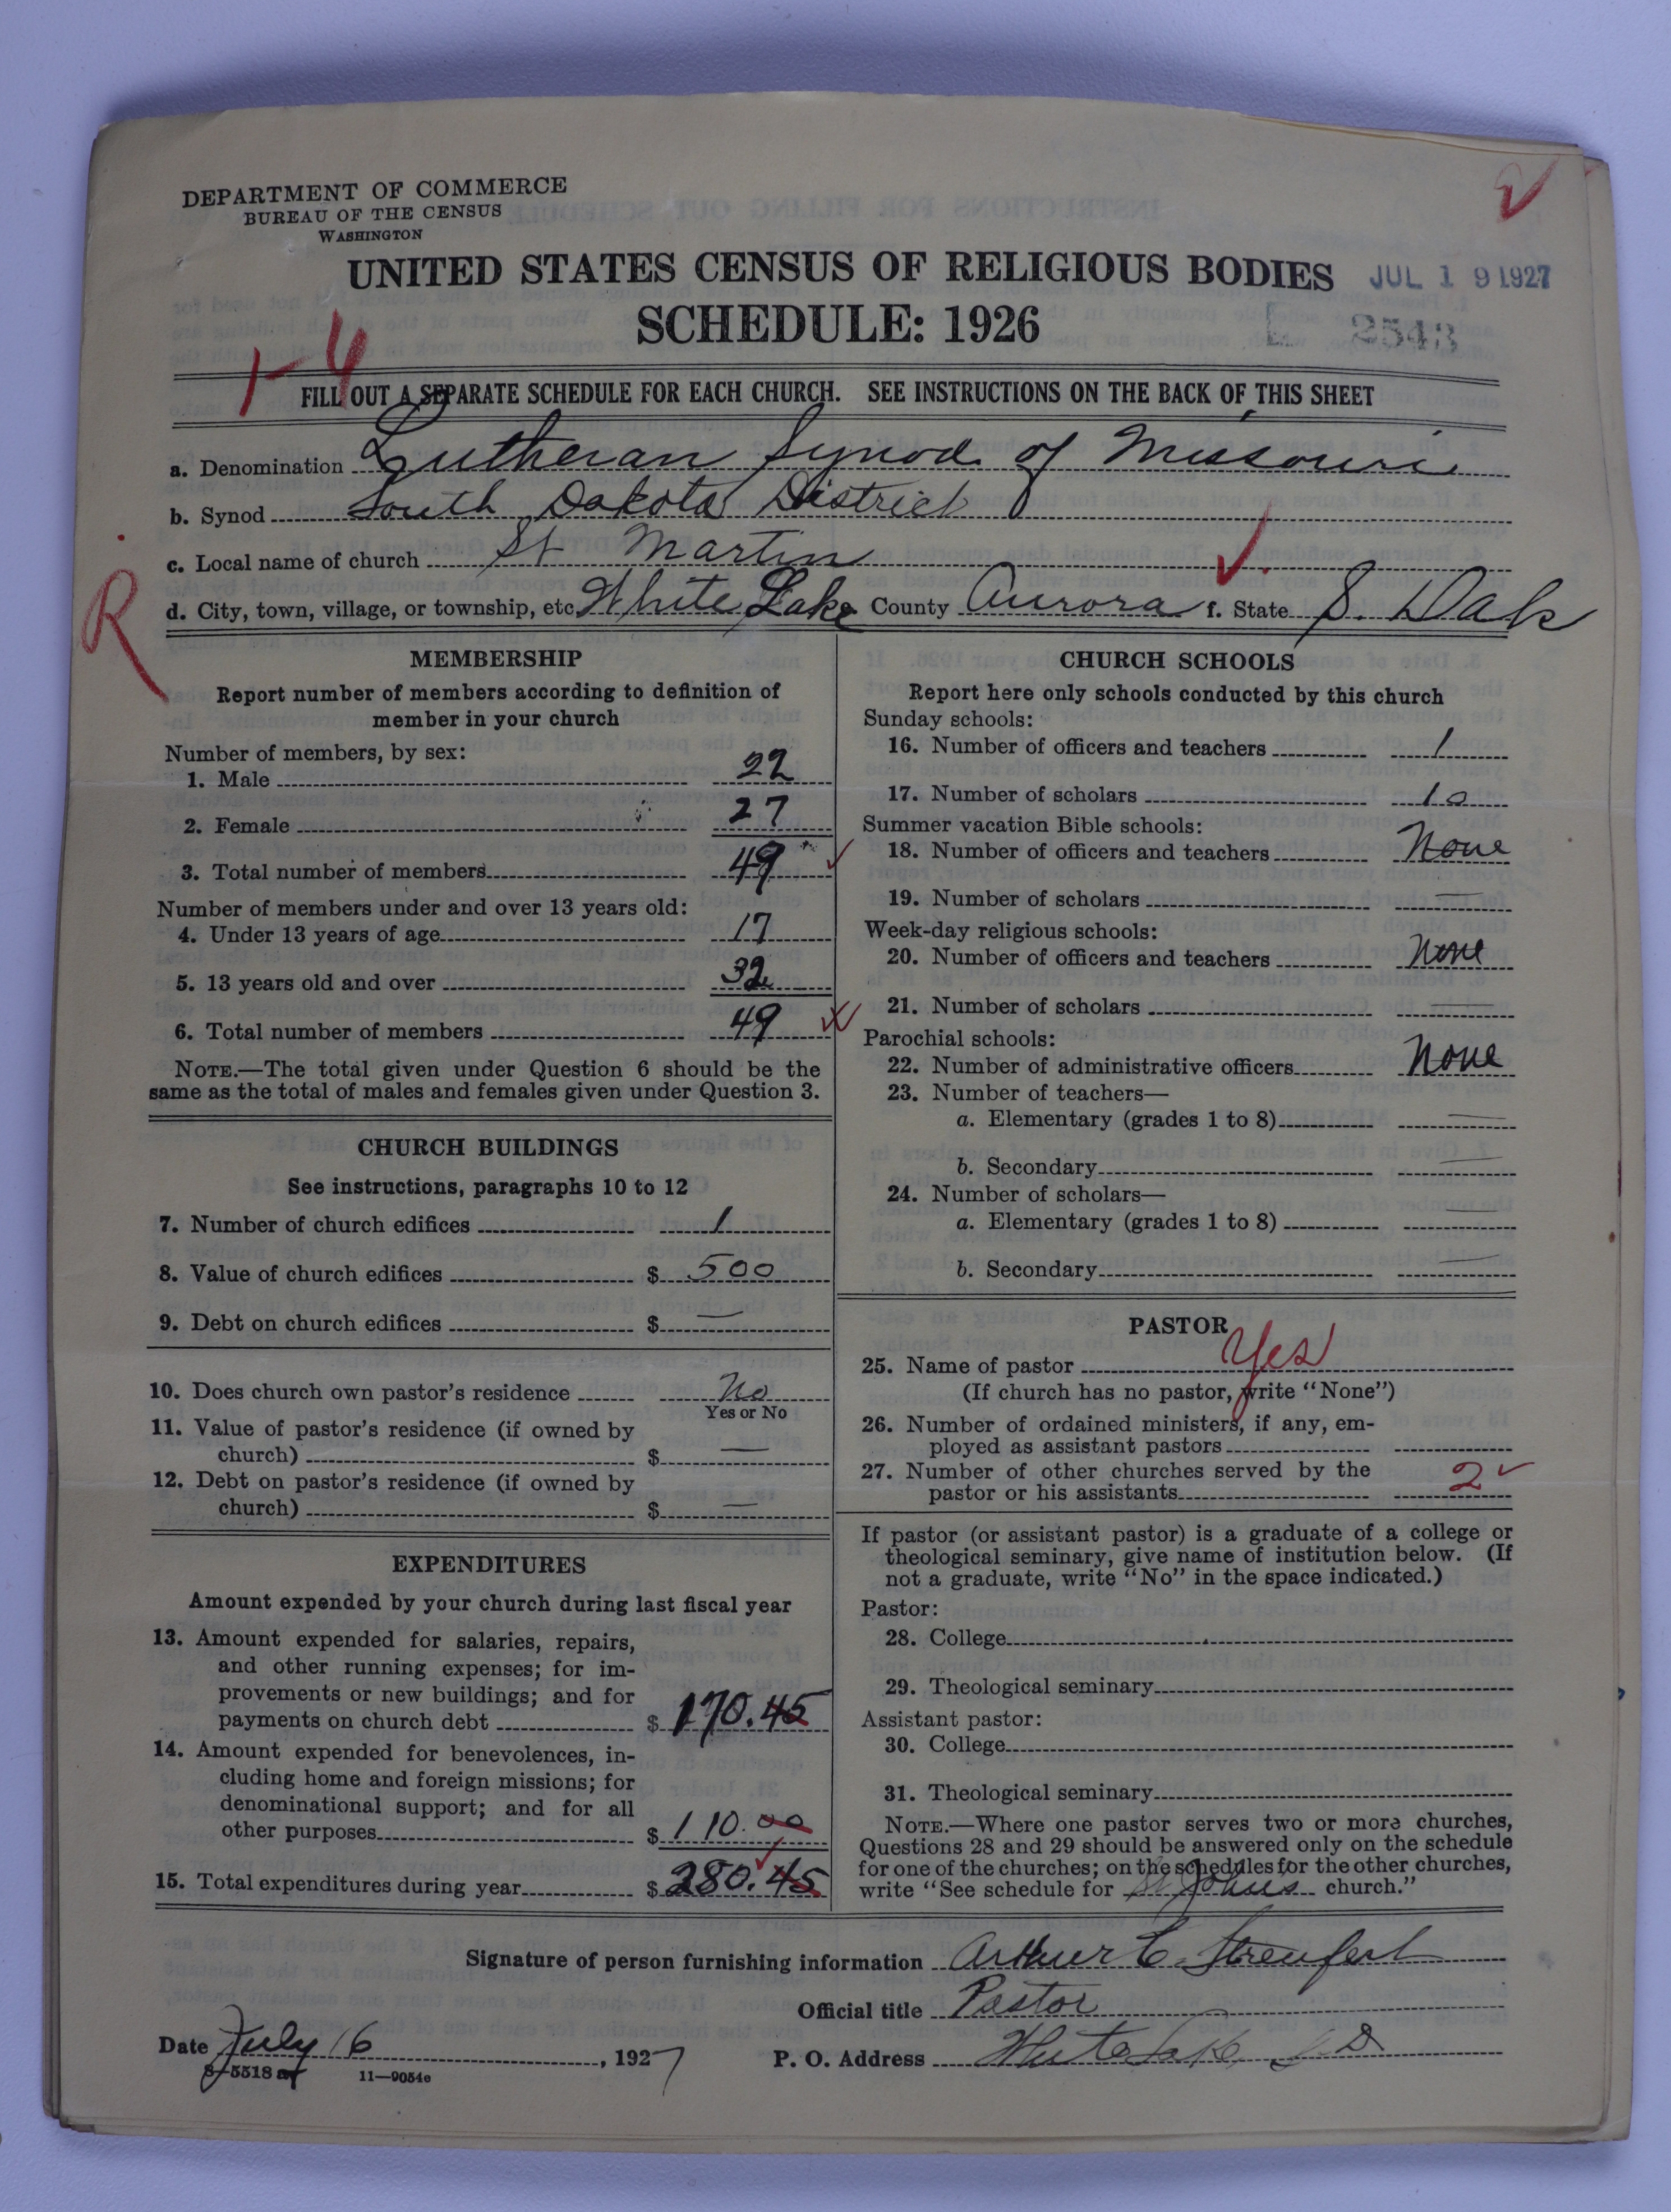 DEPARTMENT OF COMMERCE
BUREAU OF THE CENSUS
WASHINGTON
UNITED STATES CENSUS OF RELIGIOUS BODIES
JUL 19 1927
SCHEDULE: 1926
2543
1-4
FILL OUT A SEPARATE SCHEDULE FOR EACH CHURCH. SEE INSTRUCTIONS ON THE BACK OF THIS SHEET
a. Denomination Lutheran Synod of Missouri
b. Synod South Dakota District
c. Local name of church St Martin
d. City, town, village, or township, etc. White Lake County Aurora f. State S. Dak
R
MEMBERSHIP
Report number of members according to definition of
member in your church
Number of members, by sex:
1. Male 22
2. Female 27
3. Total number of members 49
Number of members under and over 13 years old:
4. Under 13 years of age 17
5. 13 years old and over 32
6. Total number of members 49
NOTE.—The total given under Question 6 should be the
same as the total of males and females given under Question 3.
CHURCH BUILDINGS
See instructions, paragraphs 10 to 12
7. Number of church edifices 1
8. Value of church edifices $ 500
9. Debt on church edifices $ —
10. Does church own pastor's residence No
Yes or No
11. Value of pastor's residence (if owned by
church) $ —
12. Debt on pastor's residence (if owned by
church) $ —
EXPENDITURES
Amount expended by your church during last fiscal year
13. Amount expended for salaries, repairs,
and other running expenses; for im-
provements or new buildings; and for
payments on church debt $ 170.45
14. Amount expended for benevolences, in-
cluding home and foreign missions; for
denominational support; and for all
other purposes $ 110.00
15. Total expenditures during year $ 280.45
CHURCH SCHOOLS
Report here only schools conducted by this church
Sunday schools:
16. Number of officers and teachers 1
17. Number of scholars 10
Summer vacation Bible schools:
18. Number of officers and teachers None
19. Number of scholars —
Week-day religious schools:
20. Number of officers and teachers None
21. Number of scholars —
Parochial schools:
22. Number of administrative officers None
23. Number of teachers—
a. Elementary (grades 1 to 8) —
b. Secondary —
24. Number of scholars—
a. Elementary (grades 1 to 8) —
b. Secondary —
PASTOR
25. Name of pastor Yes
(If church has no pastor, write "None")
26. Number of ordained ministers, if any, em-
ployed as assistant pastors
27. Number of other churches served by the
pastor or his assistants 2
If pastor (or assistant pastor) is a graduate of a college or
theological seminary, give name of institution below. (If
not a graduate, write "No" in the space indicated.)
Pastor:
28. College
29. Theological seminary
Assistant pastor:
30. College
31. Theological seminary
NOTE.—Where one pastor serves two or more churches,
Questions 28 and 29 should be answered only on the schedule
for one of the churches; on the schedules for the other churches,
write "See schedule for St Johns church."
Signature of person furnishing information Arthur C. Streufert
Official title Pastor
Date July 16, 1927
P. O. Address White Lake S D
8-5518
11—9054e